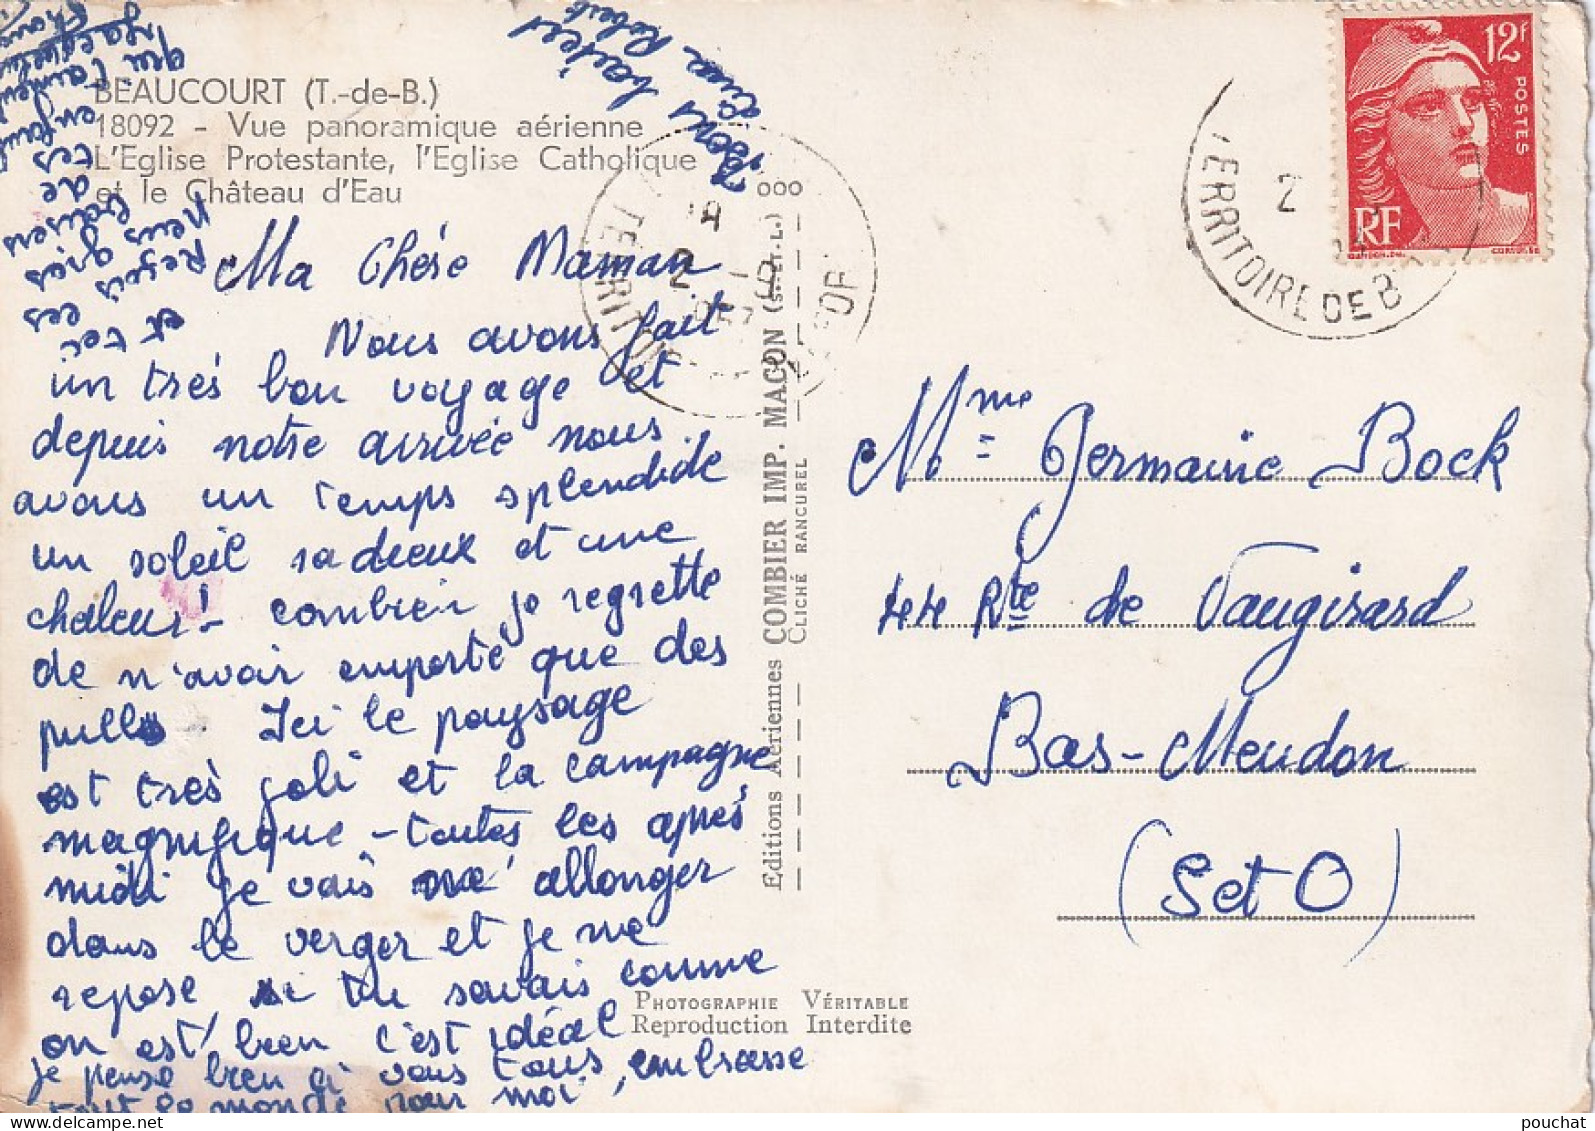 BEAUCOURT (T.-de-B.)
18092 - Vue panoramique aérienne
L'Eglise Protestante, l'Eglise Catholique
et le Château d'Eau
Ma Chére Maman
Nous avons fait
un trés bon voyage et
depuis notre arrivée nous
avons un temps splendide
un soleil radieux et une
chaleur! combien je regrette
de n'avoir emporté que des
pulls. Ici le paysage
est très joli et la campagne
magnifique - toutes les aprés
midi je vais m'allonger
dans le verger et je me
repose, si tu savais comme
on est bien c'est idéal
je pense bien à vous tous, embrasse
tout le monde pour moi,
et toi
Reçois les
gros
baisers
de tes
enfants
Bons baisers
Robert
ooo
Editions Aériennes COMBIER IMP. MACON (S.-ET-L.)
CLICHÉ RANCUREL
PHOTOGRAPHIE VÉRITABLE
Reproduction Interdite
TERRITOIRE
2
12F
POSTES
RF
GANDON.DEL.
TERRITOIRE DE B
2
Mme Germaine Bock
44 Rte de Vaugirard
Bas-Meudon
(S et O)
pouchat